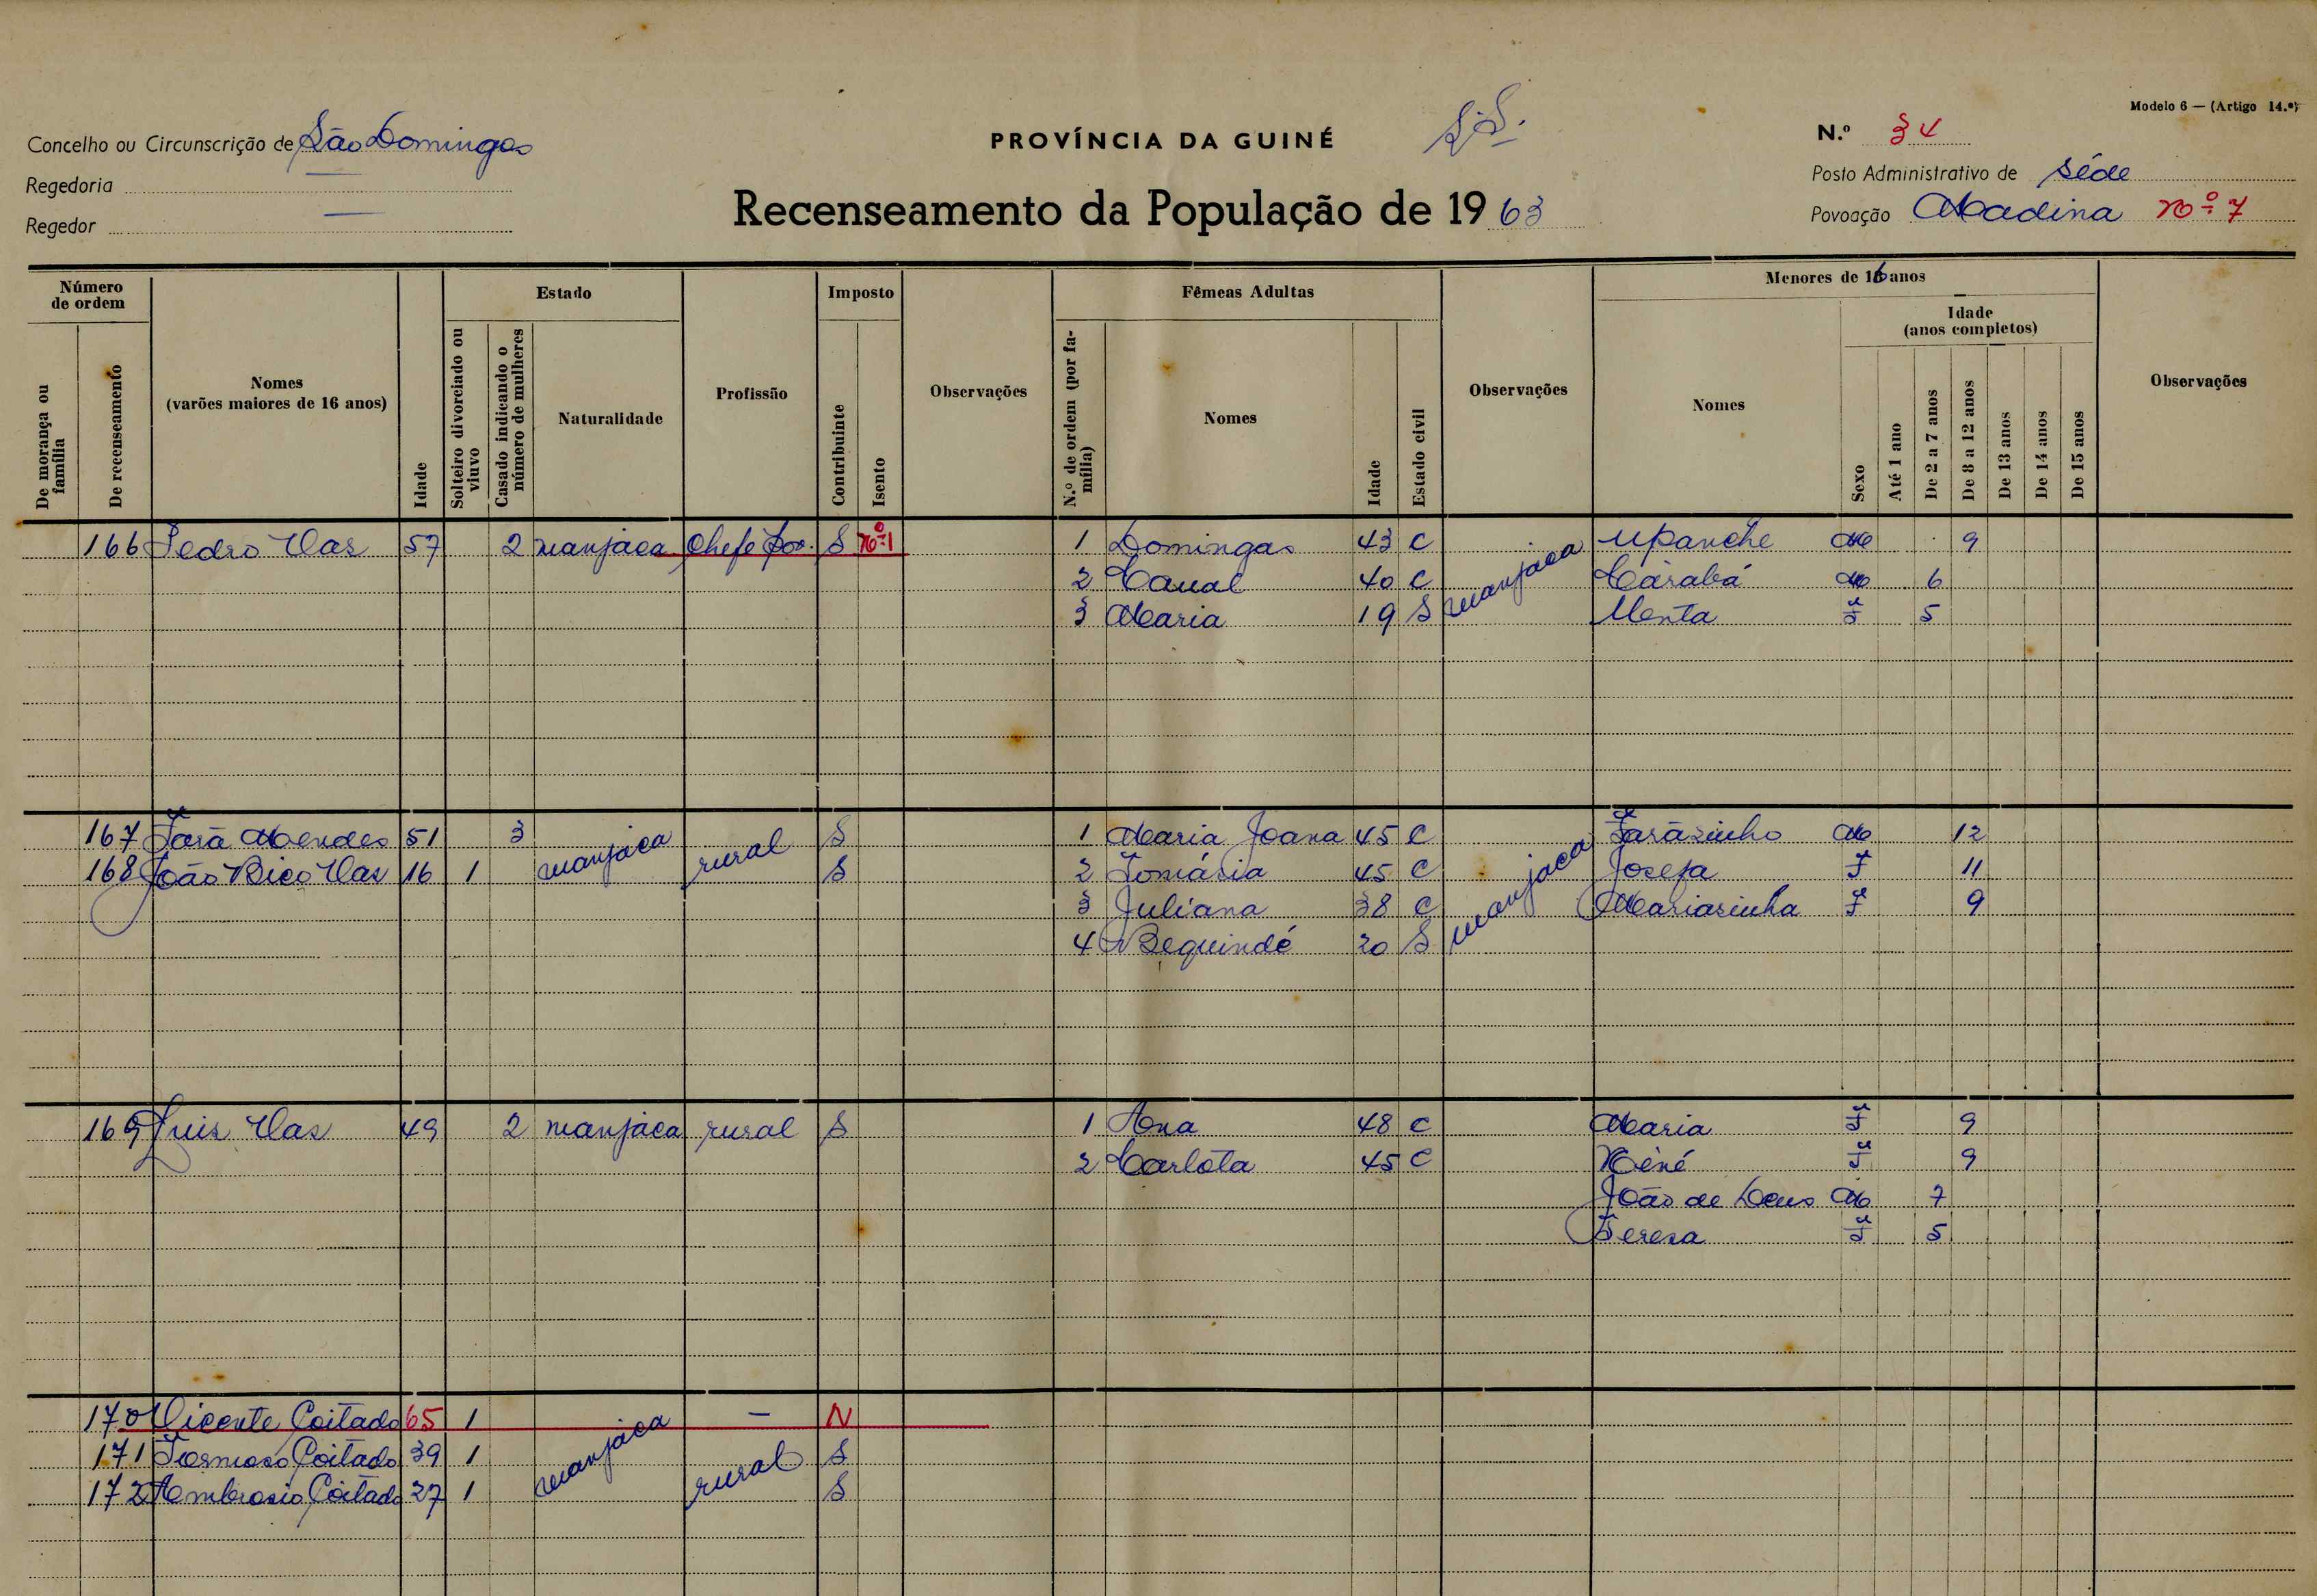 Modelo 6 — (Artigo 14.º)
Concelho ou Circunscrição de São Domingos
PROVÍNCIA DA GUINÉ
S.S.
N.º 34
Regedoria —
Posto Administrativo de Séde
Regedor —
Recenseamento da População de 1963
Povoação Madina nº 7
Número de ordem
De morança ou família
De recenseamento
Nomes (varões maiores de 16 anos)
Idade
Estado
Solteiro divorciado ou viuvo
Casado indicando o número de mulheres
Naturalidade
Profissão
Imposto
Contribuinte
Isento
Observações
Fêmeas Adultas
N.º de ordem (por família)
Nomes
Idade
Estado civil
Observações
Menores de 16 anos
Nomes
Sexo
Idade (anos completos)
Até 1 ano
De 2 a 7 anos
De 8 a 12 anos
De 13 anos
De 14 anos
De 15 anos
Observações
166 Pedro Vaz 57 2 manjaca Chefe Pov. S nº 1 1 Domingas 43 C manjaca Upanche M 9
2 Canal 40 C Cárabá M 6
3 Maria 19 S Menta F 5
167 Jará Mendes 51 3 manjaca rural S 1 Maria Joana 45 C manjaca Jarázinho M 12
168 João Bico Vaz 16 1 S 2 Tomásia 45 C Josefa F 11
3 Juliana 38 C Mariazinha F 9
4 Bequindé 20 S
169 Luis Vaz 49 2 manjaca rural S 1 Ana 48 C Maria F 9
2 Carlota 45 C Néné F 9
João de Deus M 7
Tereza F 5
170 Vicente Coitado 65 1 manjaca — N
171 Formoso Coitado 39 1 rural S
172 Ambrosio Coitado 27 1 S